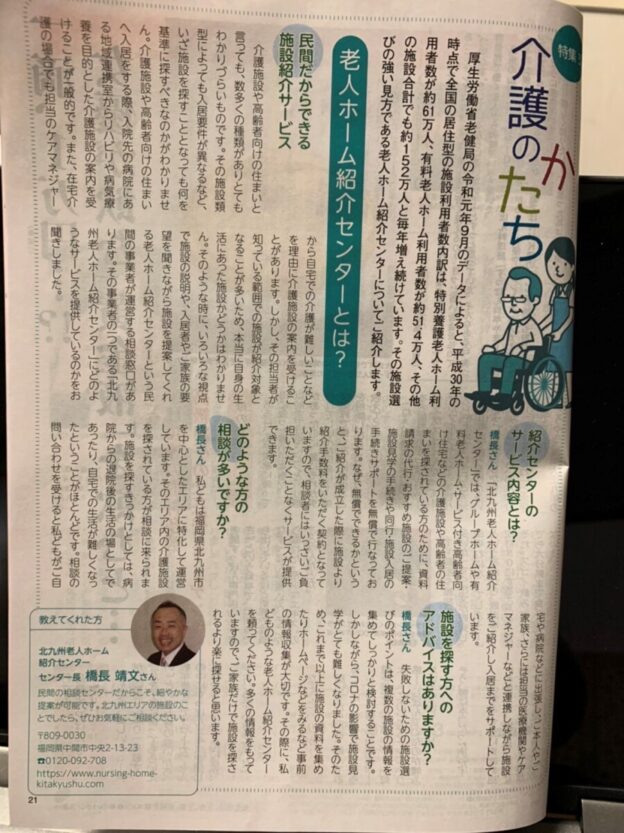 特集
介護のかたち
厚生労働省老健局の令和元年9月のデータによると、平成30年の
時点で全国の居住型の施設利用者数内訳は、特別養護老人ホーム利
用者数が約61万人、有料老人ホーム利用者数が約51.4万人、その他
の施設合計でも約152万人と毎年増え続けています。その施設選
びの強い見方である老人ホーム紹介センターについてご紹介します。
老人ホーム紹介センターとは？
民間だからできる
施設紹介サービス
介護施設や高齢者向けの住まいと
言っても、数多くの種類がありとても
わかりづらいものです。その施設類
型によっても入居要件が異なるなど、
いざ施設を探すこととなっても何を
基準に探すべきなのかがわかりませ
ん。介護施設や高齢者向けの住まい
へ入居をする際、入院先の病院にあ
る地域連携室からリハビリや病気療
養を目的とした介護施設の案内を受
けることが一般的です。また、在宅介
護の場合でも担当のケアマネジャー
から自宅での介護が難しいことなど
を理由に介護施設の案内を受けるこ
とがあります。しかし、その担当者が
知っている範囲での施設が紹介対象と
なることが多いため、本当に自身の生
活にあった施設かどうかはわかりませ
ん。そのような時に、いろいろな視点
で施設の説明や、入居者やご家族の要
望を聞きながら施設を提案してくれ
る老人ホーム紹介センターという民
間の事業者が運営する相談窓口があ
ります。その事業者の一つである「北九
州老人ホーム紹介センター」にどのよ
うなサービスを提供しているのかをお
聞きしました。
紹介センターの
サービス内容とは？
橋長さん 「北九州老人ホーム紹介
センター」では、グループホームや有
料老人ホーム・サービス付き高齢者向
け住宅などの介護施設や高齢者の住
まいを探されている方のために、資料
請求の代行、おすすめ施設のご提案・
施設見学の手続きや同行・施設入居の
手続きサポートを無償で行なってお
ります。なぜ、無償でできるかという
と、ご紹介が成立した際に施設より
紹介手数料をいただく契約となって
いますので、相談者にはいっさいご負
担いただくことなくサービスが提供
できます。
どのような方の
相談が多いですか？
橋長さん 私どもは福岡県北九州市
を中心としたエリアに特化して運営
しています。そのエリア内の介護施設
を探されている方が相談に来られま
す。施設を探すきっかけとしては、病
院からの退院後の生活の場としてで
あったり、自宅での生活が難しくなっ
たということがほとんどです。相談の
問い合わせを受けると私どもがご自
宅や病院などに出張し、ご本人やご
家族、さらには担当の医療機関やケア
マネジャーなどと連携しながら施設
をご紹介し入居までをサポートして
います。
施設を探す方への
アドバイスはありますか？
橋長さん 失敗しないための施設選
びのポイントは、複数の施設の情報を
集めてしっかりと検討することです。
しかしながら、コロナの影響で施設見
学がとても難しくなりました。そのた
め、これまで以上に施設の資料を集め
たりホームページなどをみるなど事前
の情報収集が大切です。その際に、私
どものような老人ホーム紹介センター
を頼ってください。多くの情報をもって
いますので、ご家族だけで施設を探さ
れるより楽に探せると思います。
教えてくれた方
北九州老人ホーム
紹介センター
センター長 橋長 靖文さん
民間の相談センターだからこそ、細やかな
提案が可能です。北九州エリアの施設のこ
とでしたら、ぜひお気軽にご相談ください。
〒809-0030
福岡県中間市中央2-13-23
0120-092-708
https://www.nursing-home-
kitakyushu.com
21